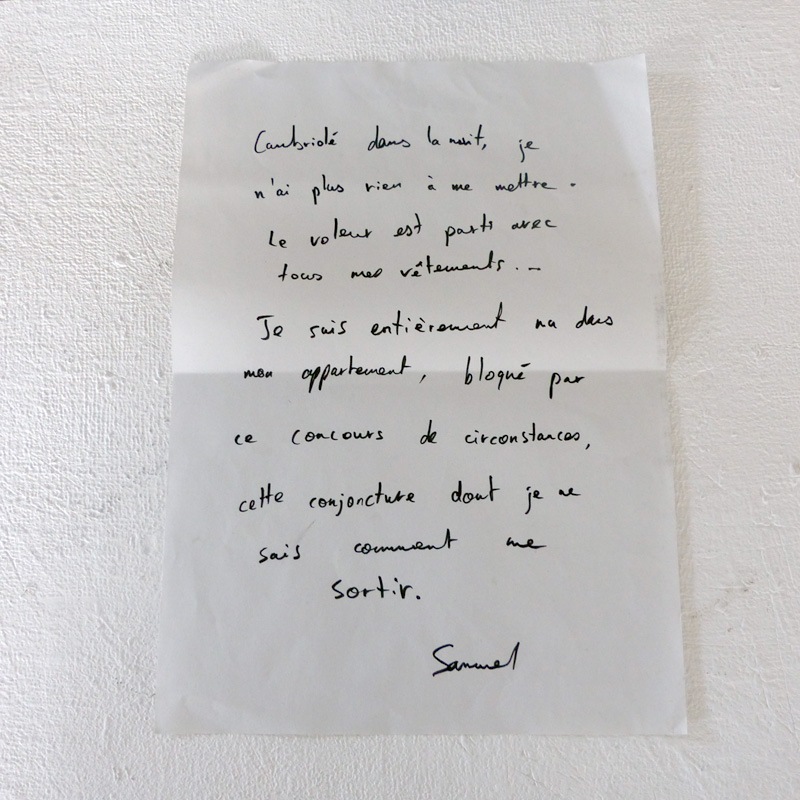 Cambriolé dans la nuit, je
n'ai plus rien à me mettre.
Le voleur est parti avec
tous mes vêtements...
Je suis entièrement nu dans
mon appartement, bloqué par
ce concours de circonstances,
cette conjoncture dont je ne
sais comment me
sortir.
Samuel